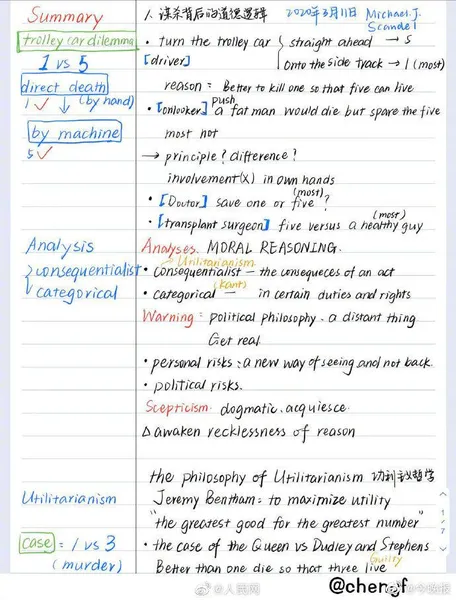 Summary
trolley car dilemma
1 vs 5
direct death
1 ✓ ↓ (by hand)
by machine
5 ✓
Analysis
consequentialist
categorical
Utilitarianism
case = 1 vs 3
(murder)
1. 谋杀背后的道德逻辑 2020年3月11日 Michael.J.
Scandel
• turn the trolley car { straight ahead → 5
[driver] onto the side track → 1 (most)
reason: Better to kill one so that five can live
• [onlooker] push a fat man would die but spare the five
most not
→ principle? difference?
involvement(x) in own hands
• [Doutor] save one or five? (most)
• [transplant surgeon] five versus a healthy guy (most)
Analyses. MORAL REASONING.
Utilitarianism
• consequentialist — the consequeces of an act
• categorical (kants) — in certain duties and rights
Warning: political philosophy - a distant thing
Get real
• personal risks: a new way of seeing and not back.
• political risks.
Scepticism dogmatic. acquiesce
△ awaken recklessness of reason
the philosophy of Utilitarianism 功利主义哲学
Jeremy Bentham: to maximize utility
"the greatest good for the greatest number"
• the case of the Queen vs Dudley and Stephens
Better than one die so that three live Guilty
1/7
@人民网
@chengf